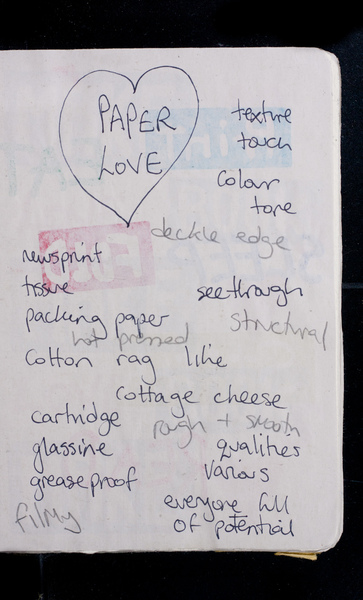 PAPER
LOVE
texture
touch
colour
tone
deckle edge
newsprint
tissue
seethrough
packing paper
structural
hot pressed
cotton rag like
cottage cheese
cartridge
rough + smooth
glassine
qualities
greaseproof
various
filmy
everyone full
of potential